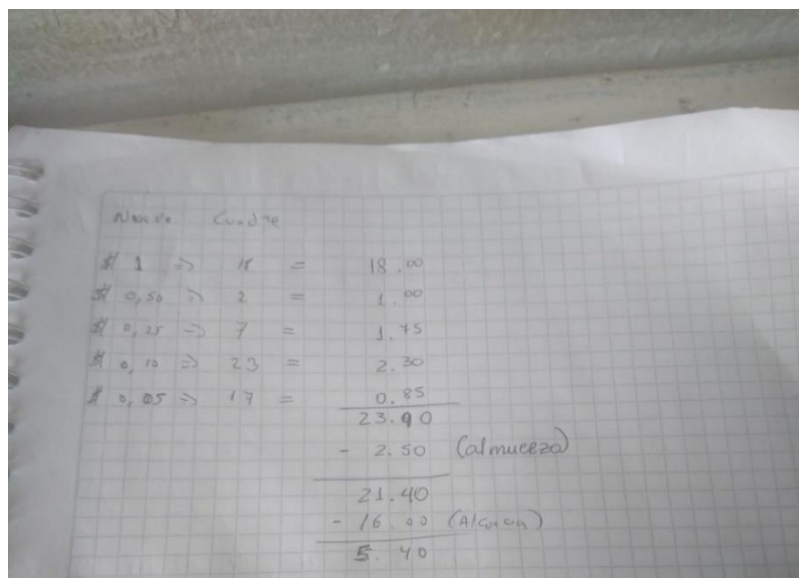 Nuevo Cuadre
$ 1 => 18 = 18.00
$ 0,50 => 2 = 1.00
$ 0,25 => 7 = 1.75
$ 0,10 => 23 = 2.30
$ 0,05 => 17 = 0.85
23.90
- 2.50 (almuerzo)
21.40
- 16.00
5.40